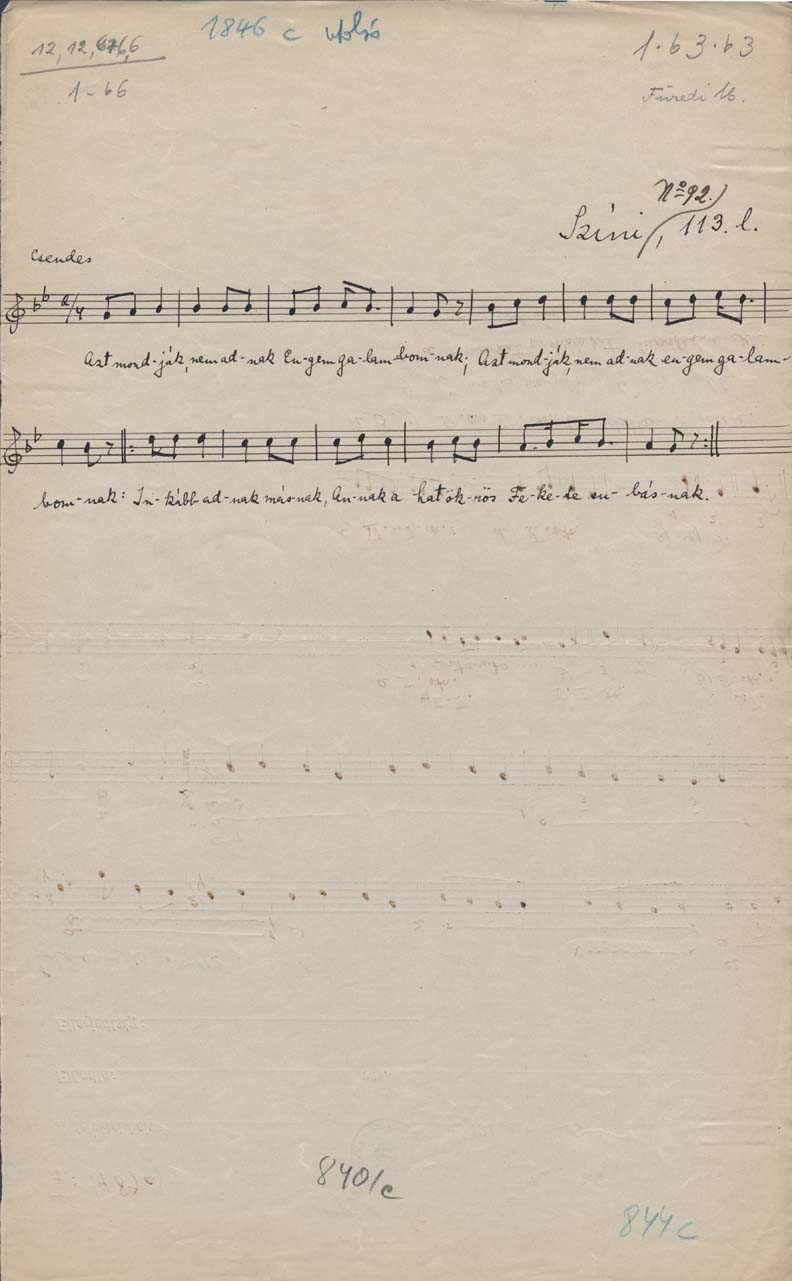 1846 c utolsó
12, 12, 6, 6
1 - b6
1 · b3 · b3
Füredi 16.
No 92.)
Színi, 113. l.
Csendes
2/4
Azt mond-ják, nem ad-nak En-gem ga-lam-bom-nak; Azt mond-ják, nem ad-nak en-gem ga-lam-
bom-nak: In-kább ad-nak más-nak, An-nak a hat ök-rös Fe-ke-te su-bás-nak.
840/c
844 c